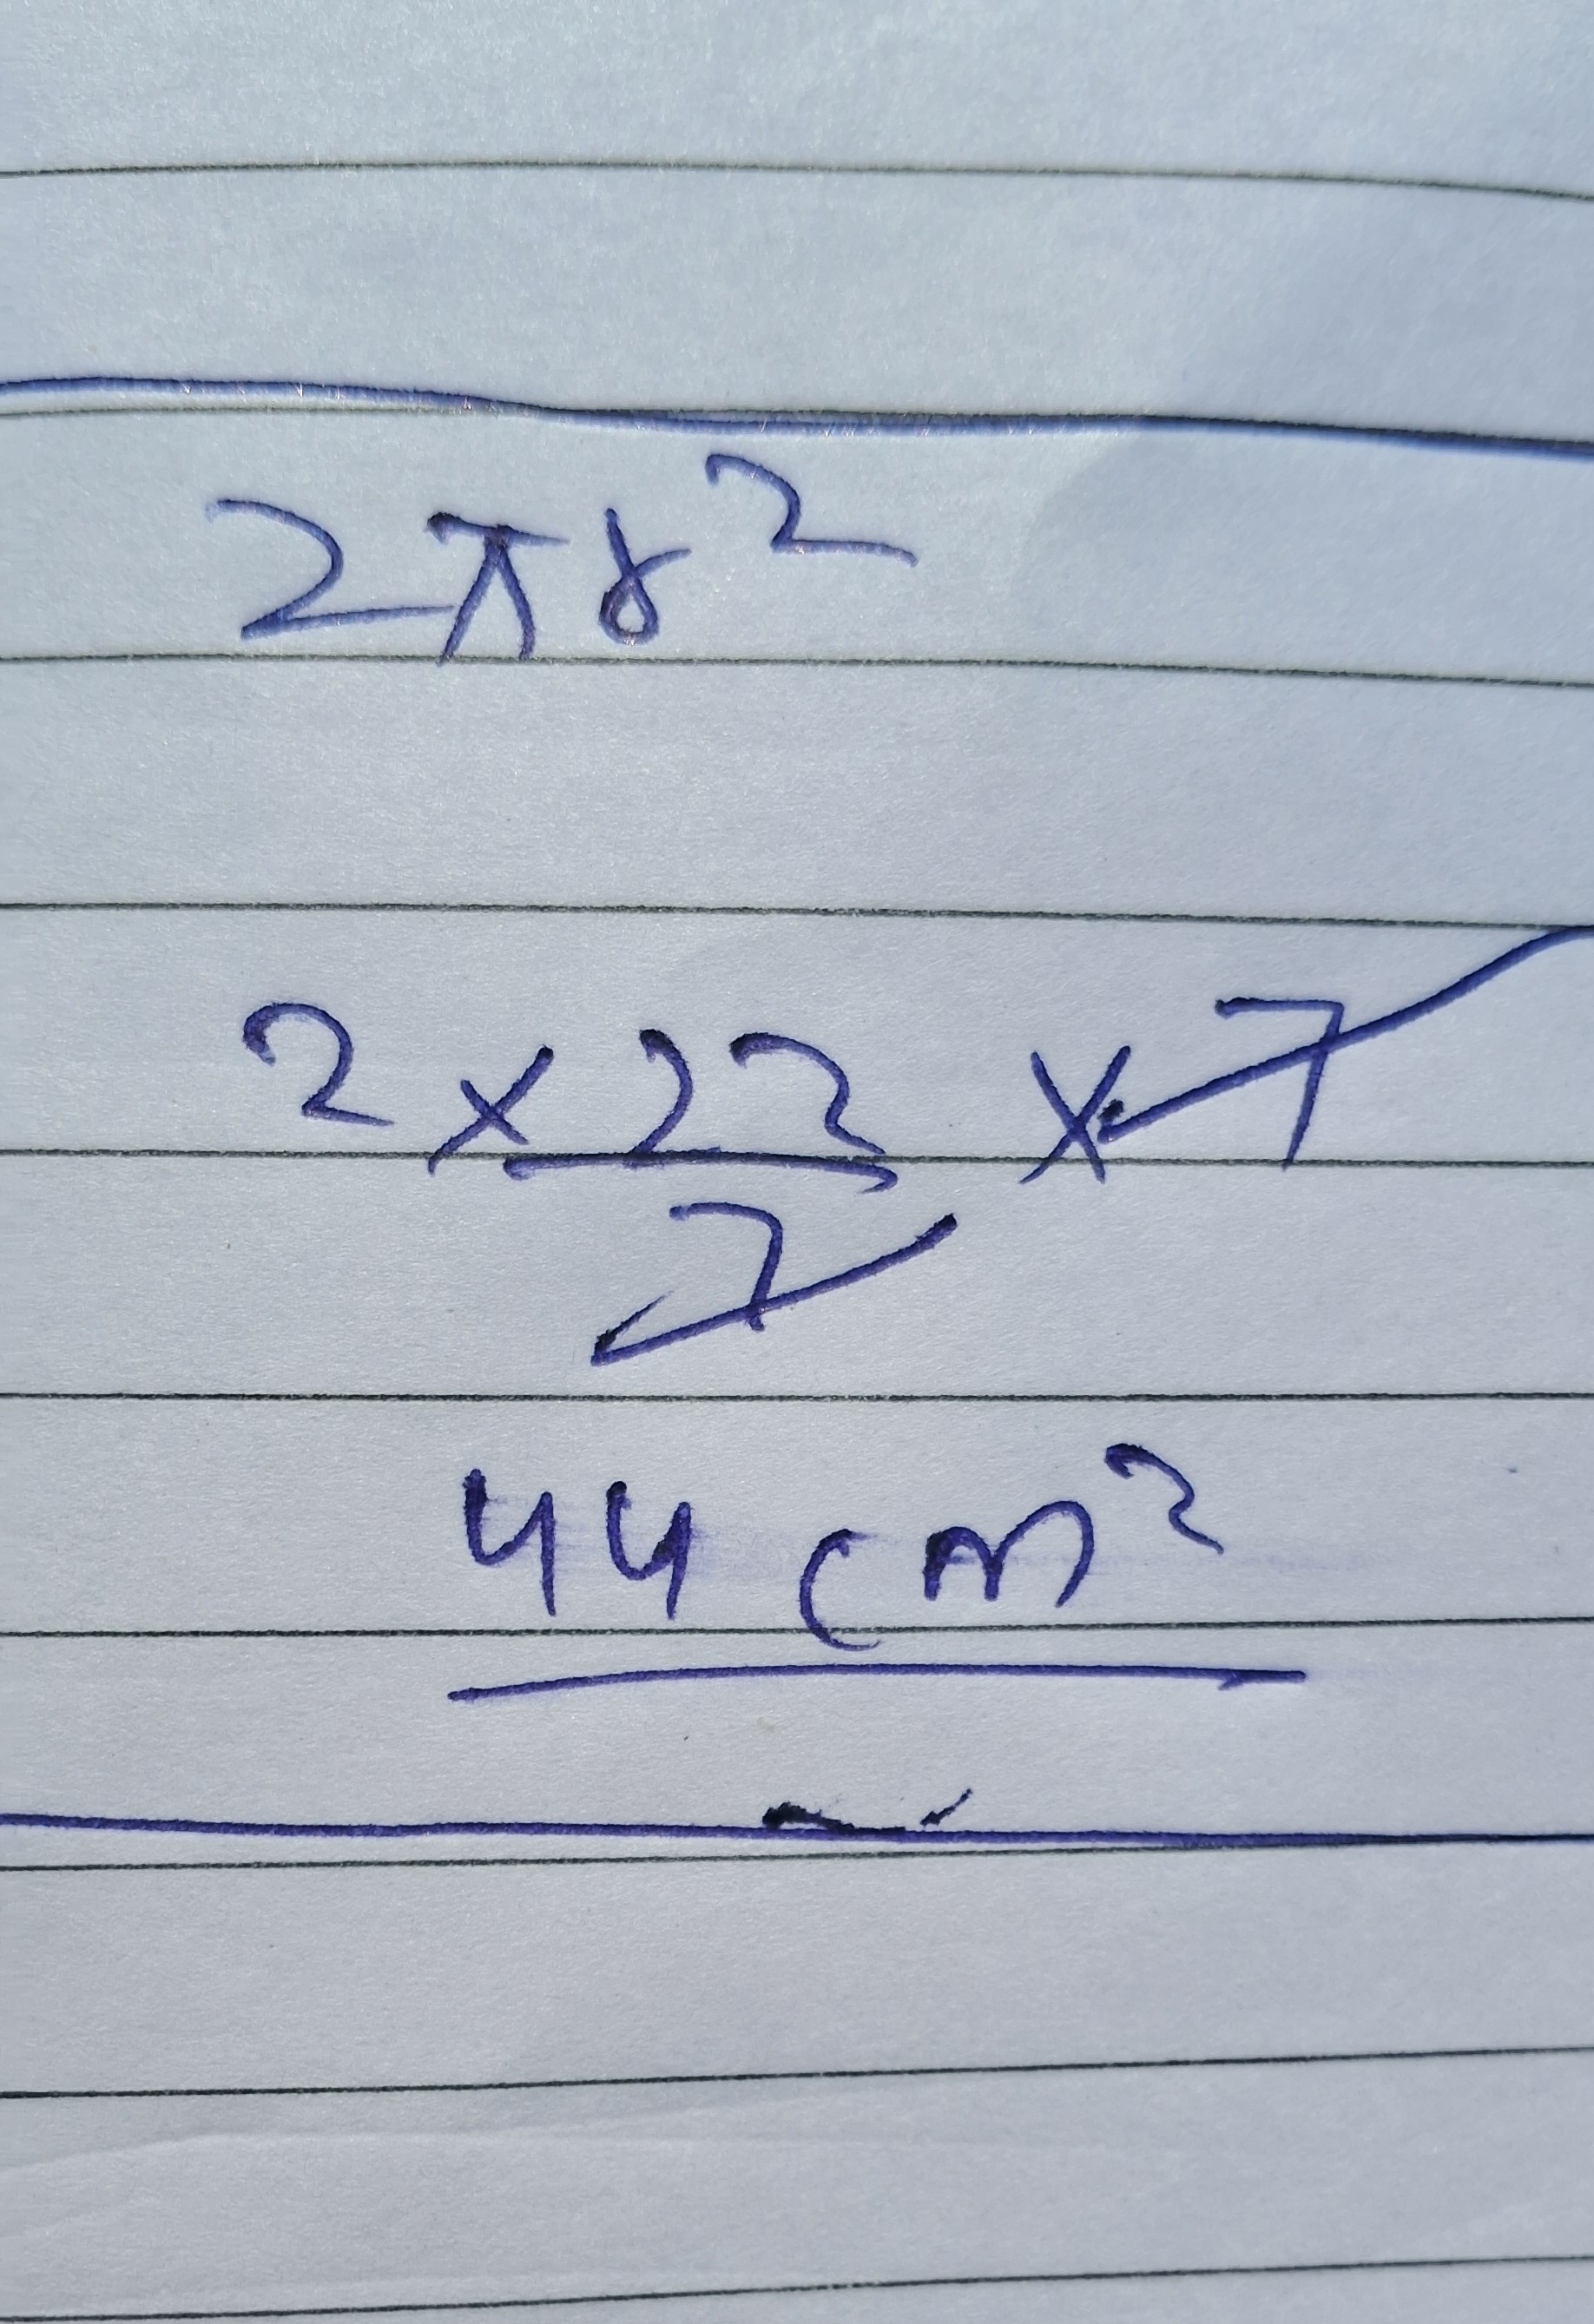 2πr²
2 × 22/7 × 7
44 cm²